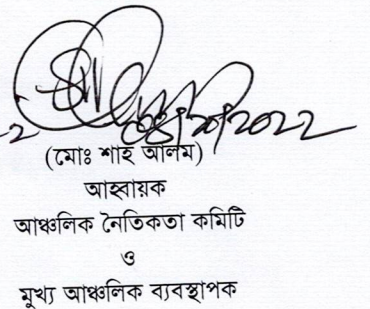 (মোঃ শাহ আলম)
আহবায়ক
আঞ্চলিক নৈতিকতা কমিটি
ও
মুখ্য আঞ্চলিক ব্যবস্থাপক